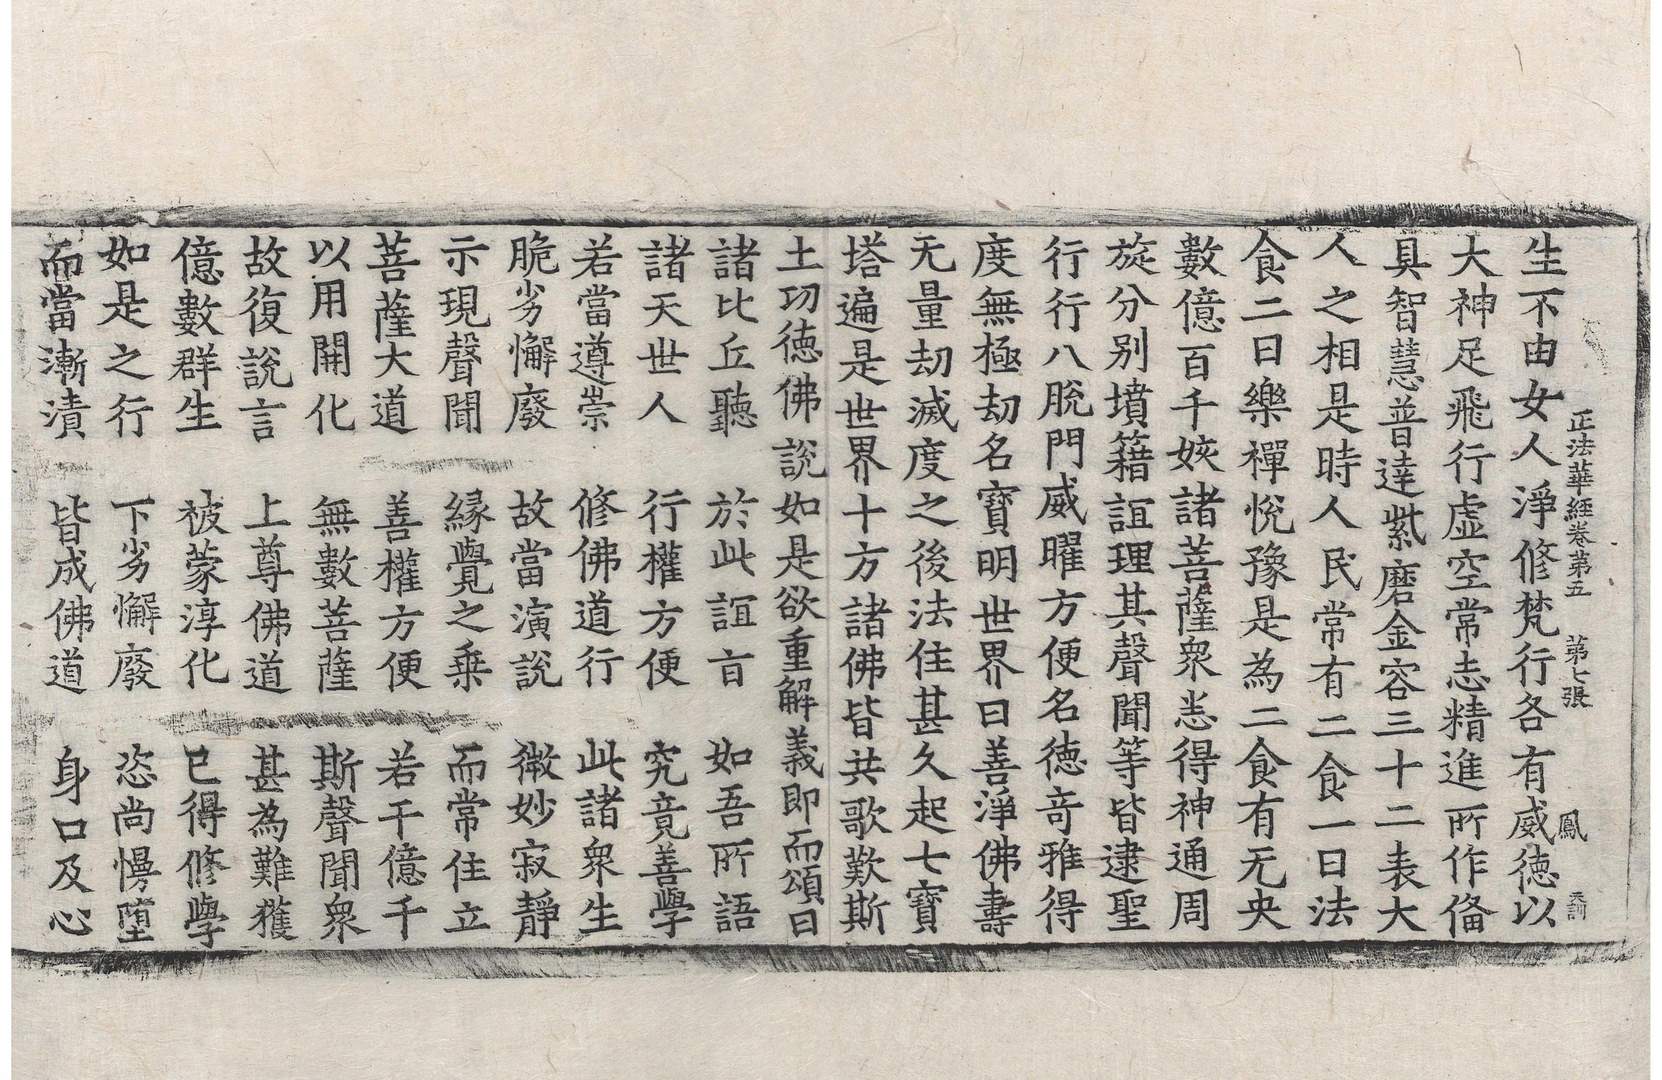 正法華經卷第五 第七張 鳳 天訓
生不由女人淨修梵行各有威德以
大神足飛行虛空常志精進所作備
具智慧普達紫磨金容三十二表大
人之相是時人民常有二食一曰法
食二曰樂禪悅豫是為二食有无央
數億百千姟諸菩薩衆恙得神通周
旋分別墳籍誼理其聲聞等皆逮聖
行行八脫門威曜方便名德奇雅得
度無極劫名寶明世界曰善淨佛壽
无量劫滅度之後法住甚久起七寶
塔遍是世界十方諸佛皆共歌歎斯
土功德佛說如是欲重解義即而頌曰
諸比丘聽 於此誼言 如吾所語
諸天世人 行權方便 究竟善學
若當遵崇 修佛道行 此諸衆生
脆劣懈廢 故當演說 微妙寂靜
示現聲聞 緣覺之乘 而常住立
菩薩大道 善權方便 若干億千
以用開化 無數菩薩 斯聲聞衆
故復說言 上尊佛道 甚為難獲
億數群生 被蒙淳化 已得修學
如是之行 下劣懈廢 恣尚慢墮
而當漸漬 皆成佛道 身口及心